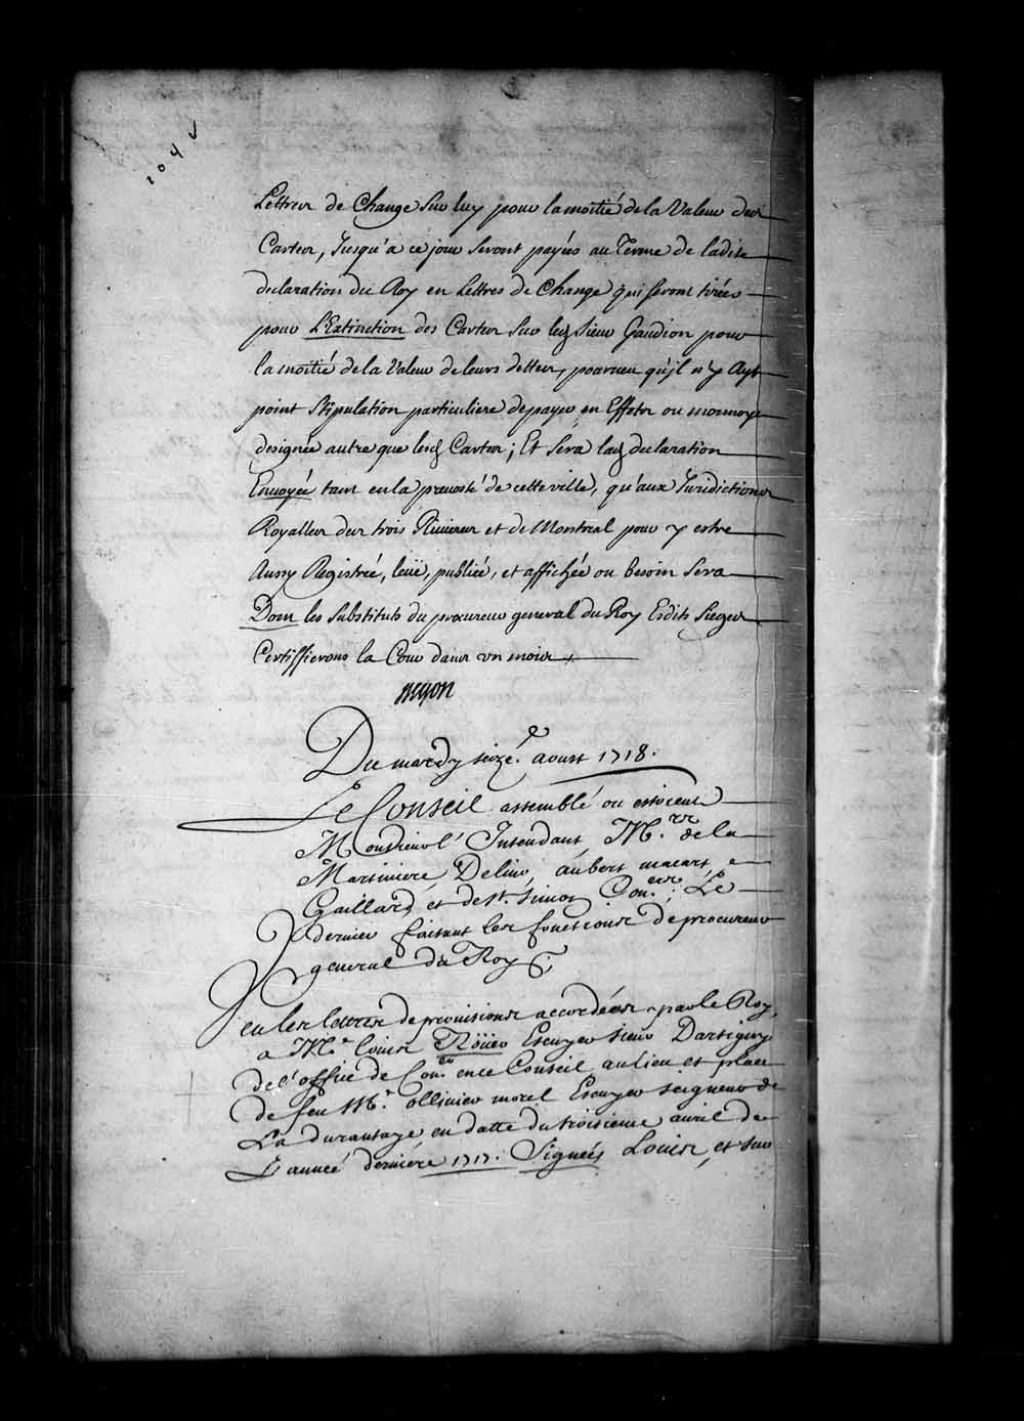 104 v
Lettres de Change Sur luy pour la moitié de la Valeur des
Cartes, Jusqu'a ce jour Seront payées au Terme de ladite
declaration du Roy en Lettres de Change qui seront tirées
pour L'Extinction des Cartes Sur led Sieur Gaudion pour
la moitié de la Valeur de leurs dettes, pourveu qu'il n'y Ayt
point Stipulation particuliere de payer en Effets ou monnoye
designée autre que lesd Cartes; Et Sera lad declaration
Envoyée tant en la prevosté de cette ville, qu'aux Juridictions
Royalles des trois Rivieres et de Montreal pour y estre
Aussy Registrée, leüe, publiée, et affichée ou besoin Sera
Dont les Substituts du procureur general du Roy Esdits Sieges
Certiffierons la Cour dans un mois
Begon
Du mardy seize.e aoust 1718.
Le Conseil assemblé ou estoient
Monsieur l'Intendant, M.rs de la
Martiniere, Delino, aubert, macart,
Gaillard et de St. Simon Con.ers; Le
dernier faisant les fonctions de procureur
general du Roy
Veu les lettres de provisions accordées par le Roy,
a M.e Louis Roüer Escuyer sieur Dartigny
de l'office de Con.er en ce Conseil au lieu et place
de feu M.r ollivier morel Escuyer seigneur de
La durantaye en datte du troisieme avril de
L'année derniere 1717. Signées Louis, et sur